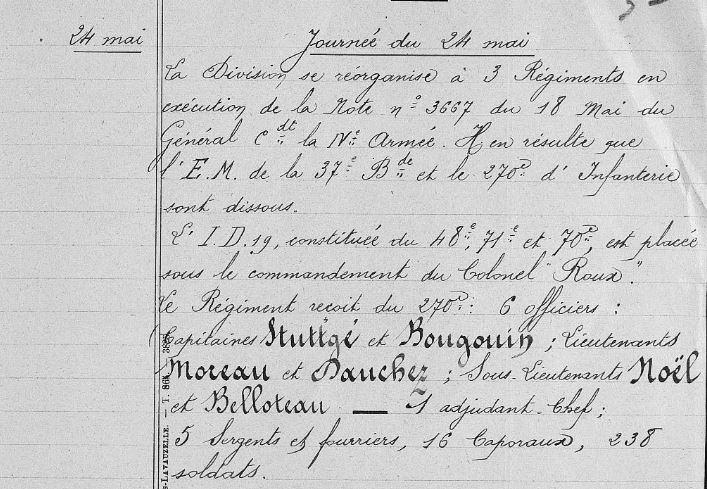 24 mai
Journée du 24 mai
La Division se réorganise à 3 Régiments en
exécution de la Note n° 3667 du 18 Mai du
Général Cdt la IVe Armée. Il en résulte que
l'E.M. de la 37e Bde et le 270e d'Infanterie
sont dissous.
L'I.D.19, constituée du 48e, 71e et 70e, est placée
sous le commandement du Colonel "Roux".
Le Régiment reçoit du 270e: 6 officiers:
Capitaines Stuttgé et Bougouin; Lieutenants
Moreau et Dauchez; Sous-Lieutenants Noël
et Belloteau — 1 adjudant-Chef;
5 Sergents et fourriers, 16 Caporaux, 238
soldats.
-LAVAUZELLE. — T. 86